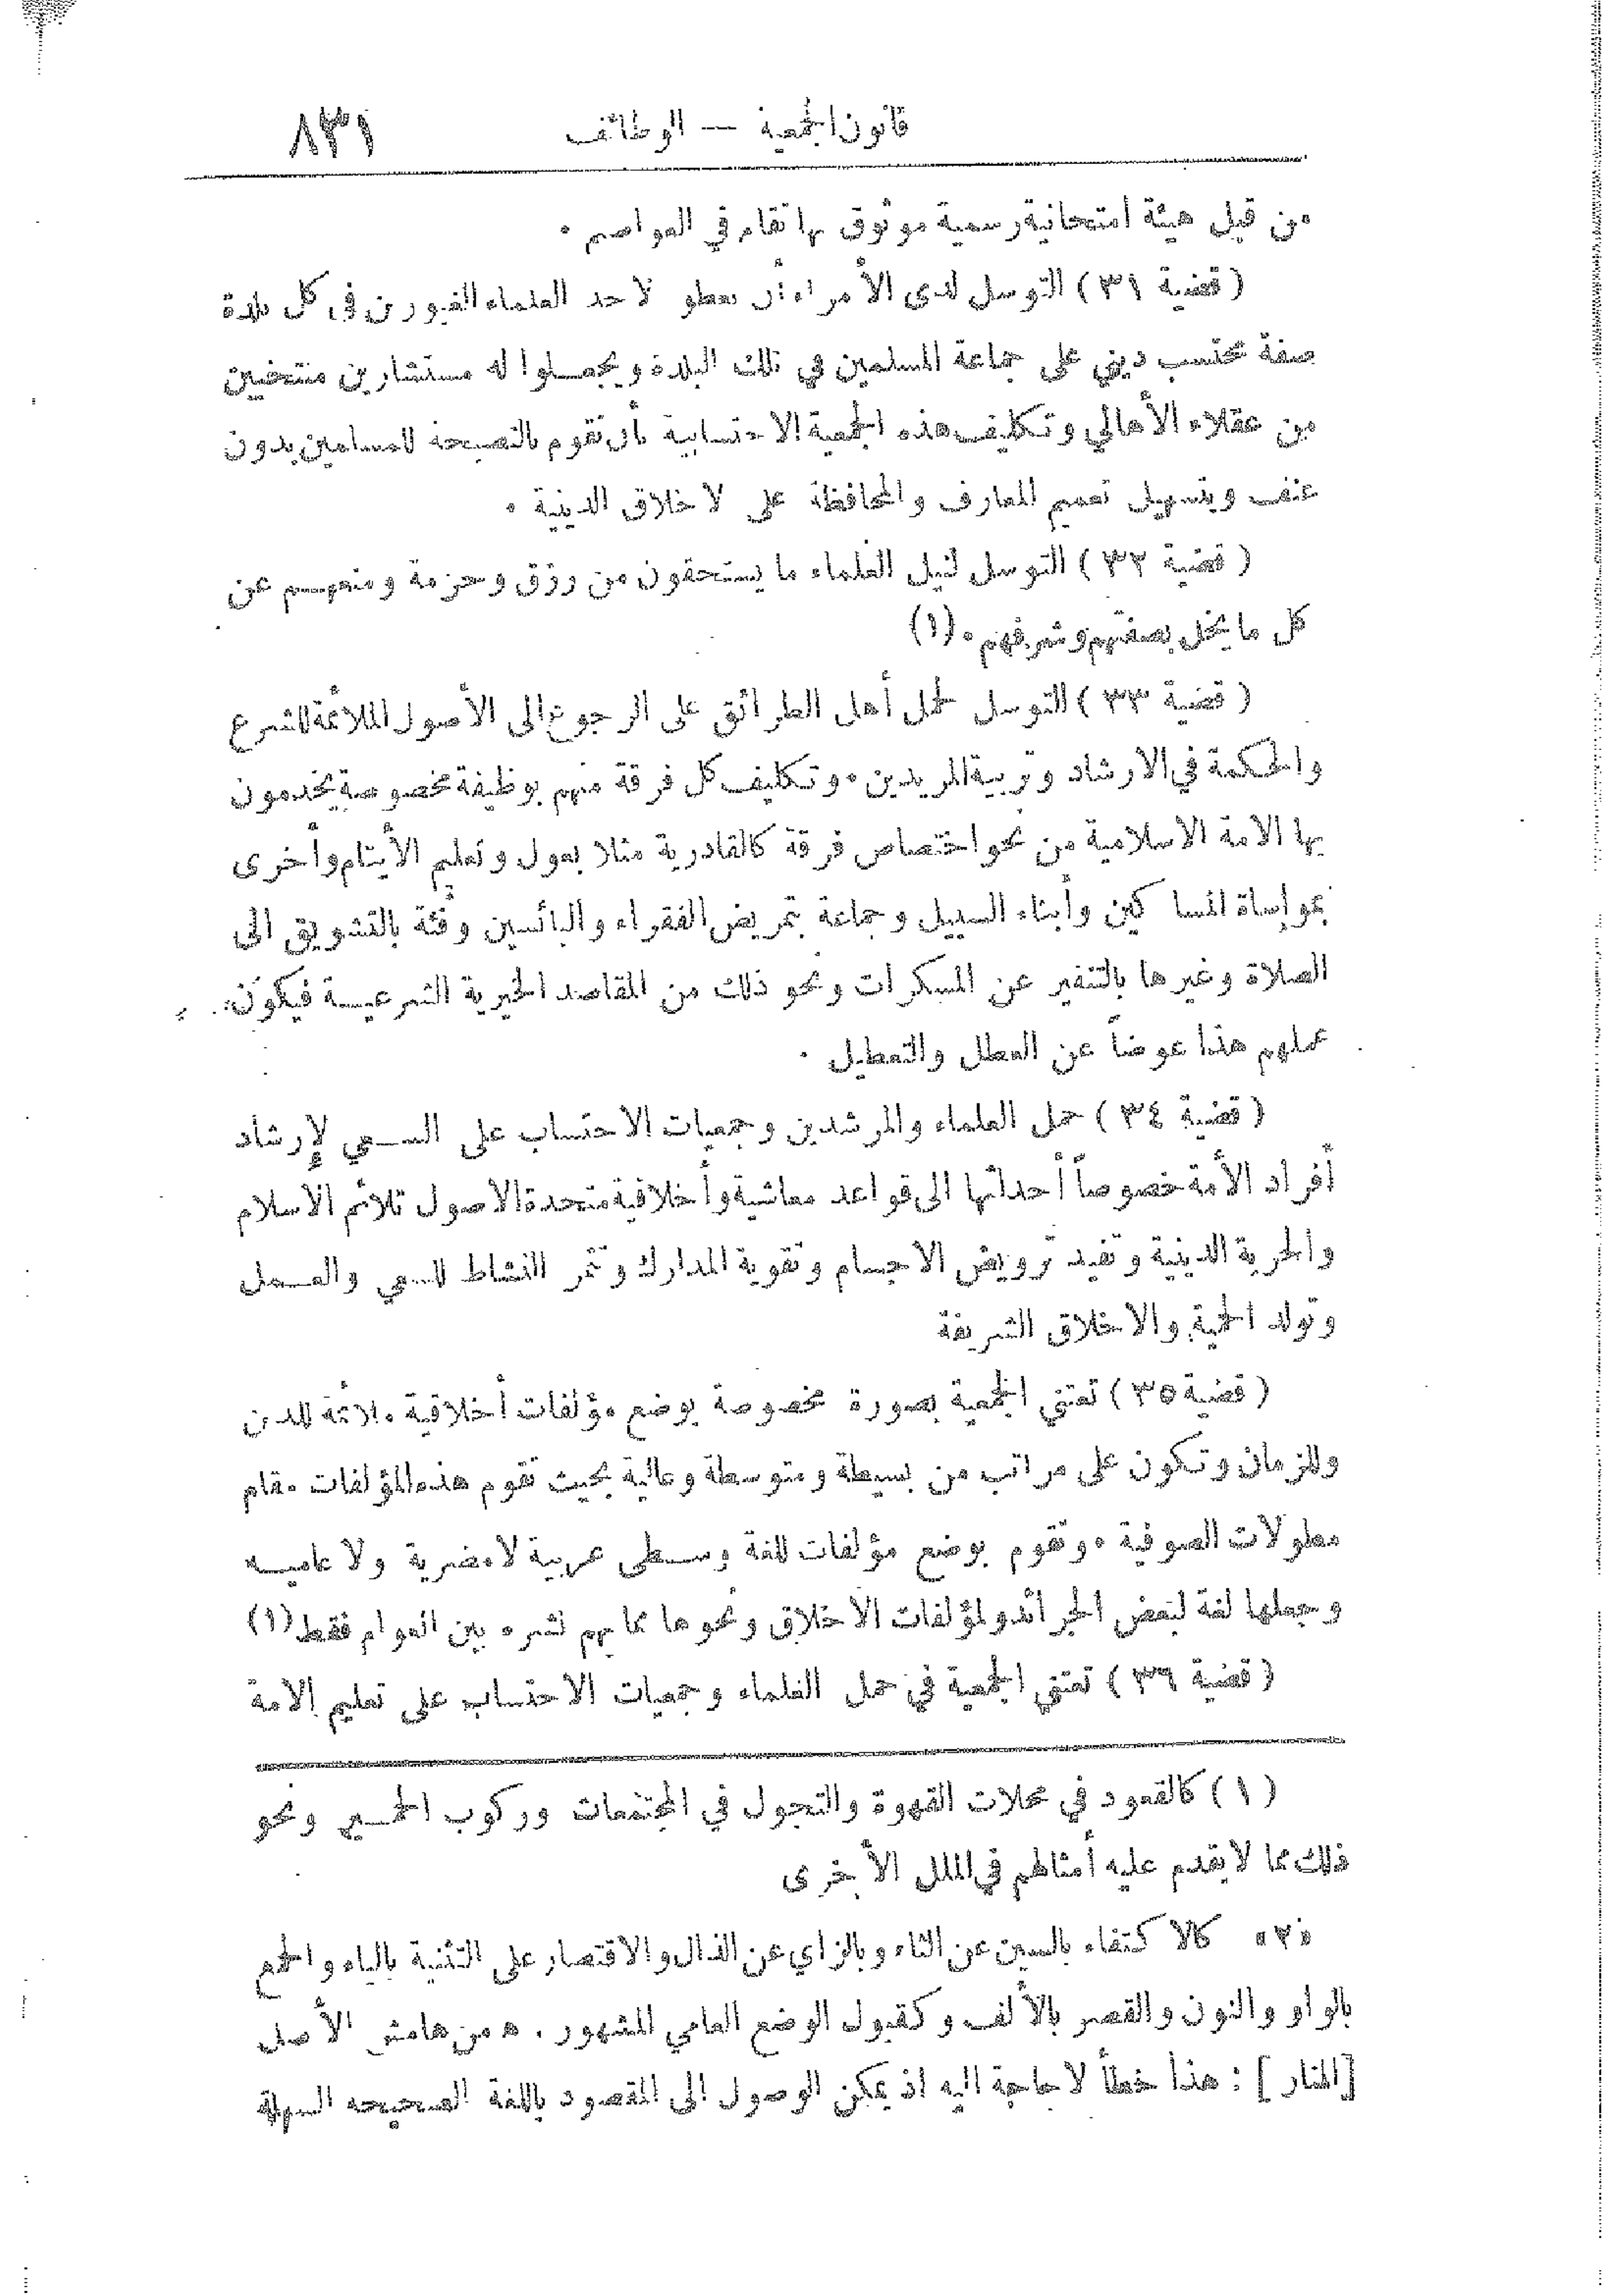 قانون الجمعية — الوظائف ٨٣١
من قبل هيئة امتحانية رسمية موثوق بها تقام في العواصم .
( قضية ٣١ ) التوسل لدى الأمراء أن يعطوا لاحد العلماء الغيورين في كل بلدة
صفة محتسب ديني على جماعة المسلمين في تلك البلدة ويجعلوا له مستشارين منتخبين
من عقلاء الأهالي وتكليف هذه الجمعية الاحتسابية بأن تقوم بالنصيحة للمسلمين بدون
عنف وبتسهيل تعميم المعارف والمحافظة على لاخلاق الدينية .
( قضية ٣٢ ) التوسل لنيل العلماء ما يستحقون من رزق وحرمة ومنعهم عن
كل ما يخل بصفتهم وشرفهم . (١)
( قضية ٣٣ ) التوسل لحمل أهل الطرائق على الرجوع إلى الأصول الملائمة للشرع
والحكمة في الارشاد وتربية المريدين . وتكليف كل فرقة منهم بوظيفة مخصوصة يخدمون
بها الامة الاسلامية من نحو اختصاص فرقة كالقادرية مثلا بعول وتعليم الأيتام وأخرى
بمواساة المساكين وأبناء السبيل وجماعة بتمريض الفقراء والبائسين وفئة بالتشويق الى
الصلاة وغيرها بالتنفير عن المسكرات ونحو ذلك من المقاصد الخيرية الشرعية فيكون
عملهم هذا عوضاً عن العطل والتعطيل .
( قضية ٣٤ ) حمل العلماء والمرشدين وجمعيات الاحتساب على السعي لإرشاد
أفراد الأمة خصوصاً أحداثها الى قواعد معاشية وأخلاقية متحدة الاصول تلائم الاسلام
والحرية الدينية وتفيد ترويض الاجسام وتقوية المدارك وتثمر النشاط للسعي والعمل
وتولد الحمية والاخلاق الشريفة
( قضية ٣٥ ) تعتني الجمعية بصورة مخصوصة بوضع مؤلفات أخلاقية ملائمة للدين
وللزمان وتكون على مراتب من بسيطة ومتوسطة وعالية بحيث تقوم هذه المؤلفات مقام
مطولات الصوفية . وتقوم بوضع مؤلفات للغة وسطى عربية لا مضرية ولا عاميه
وجعلها لغة لبعض الجرائد ولمؤلفات الاخلاق ونحوها مما يهم نشره بين العوام فقط (١)
( قضية ٣٦ ) تعتني الجمعية في حمل العلماء وجمعيات الاحتساب على تعليم الامة
( ١ ) كالقعود في محلات القهوة والتجول في المجتمعات وركوب الحمير ونحو
ذلك مما لا يقدم عليه أمثالهم في الملل الأخرى
«٢» كالاكتفاء بالسين عن الثاء وبالزاي عن الذال والاقتصار على التثنية بالياء والجمع
بالواو والنون والقصر بالألف وكقبول الوضع العامي المشهور . ه من هامش الأصل
[المنار] : هذا خطأ لا حاجة اليه اذ يمكن الوصول الى المقصود باللغة الصحيحه السهلة